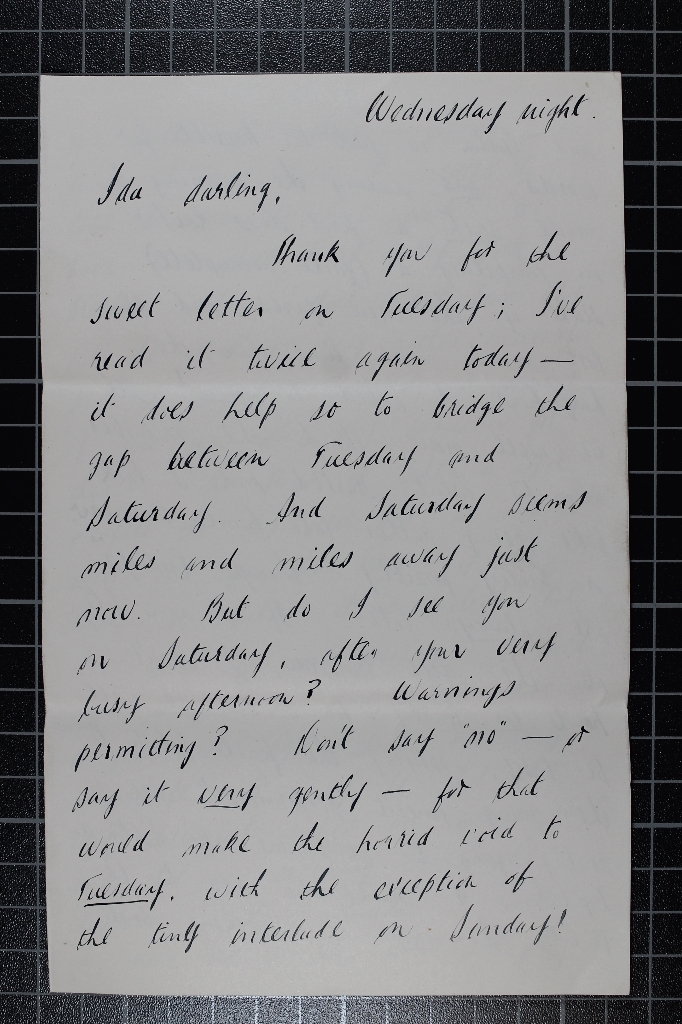 Wednesday night.
Ida darling,
Thank you for the
sweet letter on Tuesday; I've
read it twice again today —
it does help so to bridge the
gap between Tuesday and
Saturday. And Saturday seems
miles and miles away just
now. But do I see you
on Saturday, after your very
busy afternoon? Warnings
permitting? Don't say "no" — or
say it very gently — for that
would make the horrid void to
Tuesday, with the exception of
the tiny interlude on Sunday!